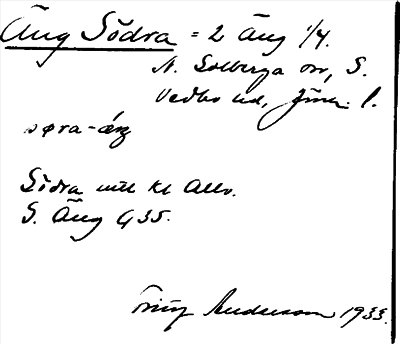 Äng Södra = 2 Äng 1/4.
N. Solberga sn, S.
Vedbo hd, Jönk. l.
søra-ǽŋ
Södra enl. kl Allv.
S. Äng G 35.
Andersson 1933.